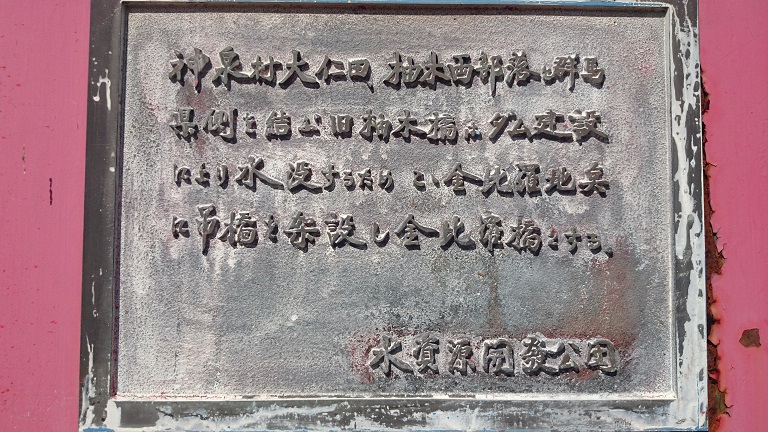 神泉村大仁田、柚木西部落と群馬
県側を結ぶ旧柚木橋はダム建設
により水没するため こゝ金比羅地点
に吊橋を架設し金比羅橋とする。
水資源開発公団